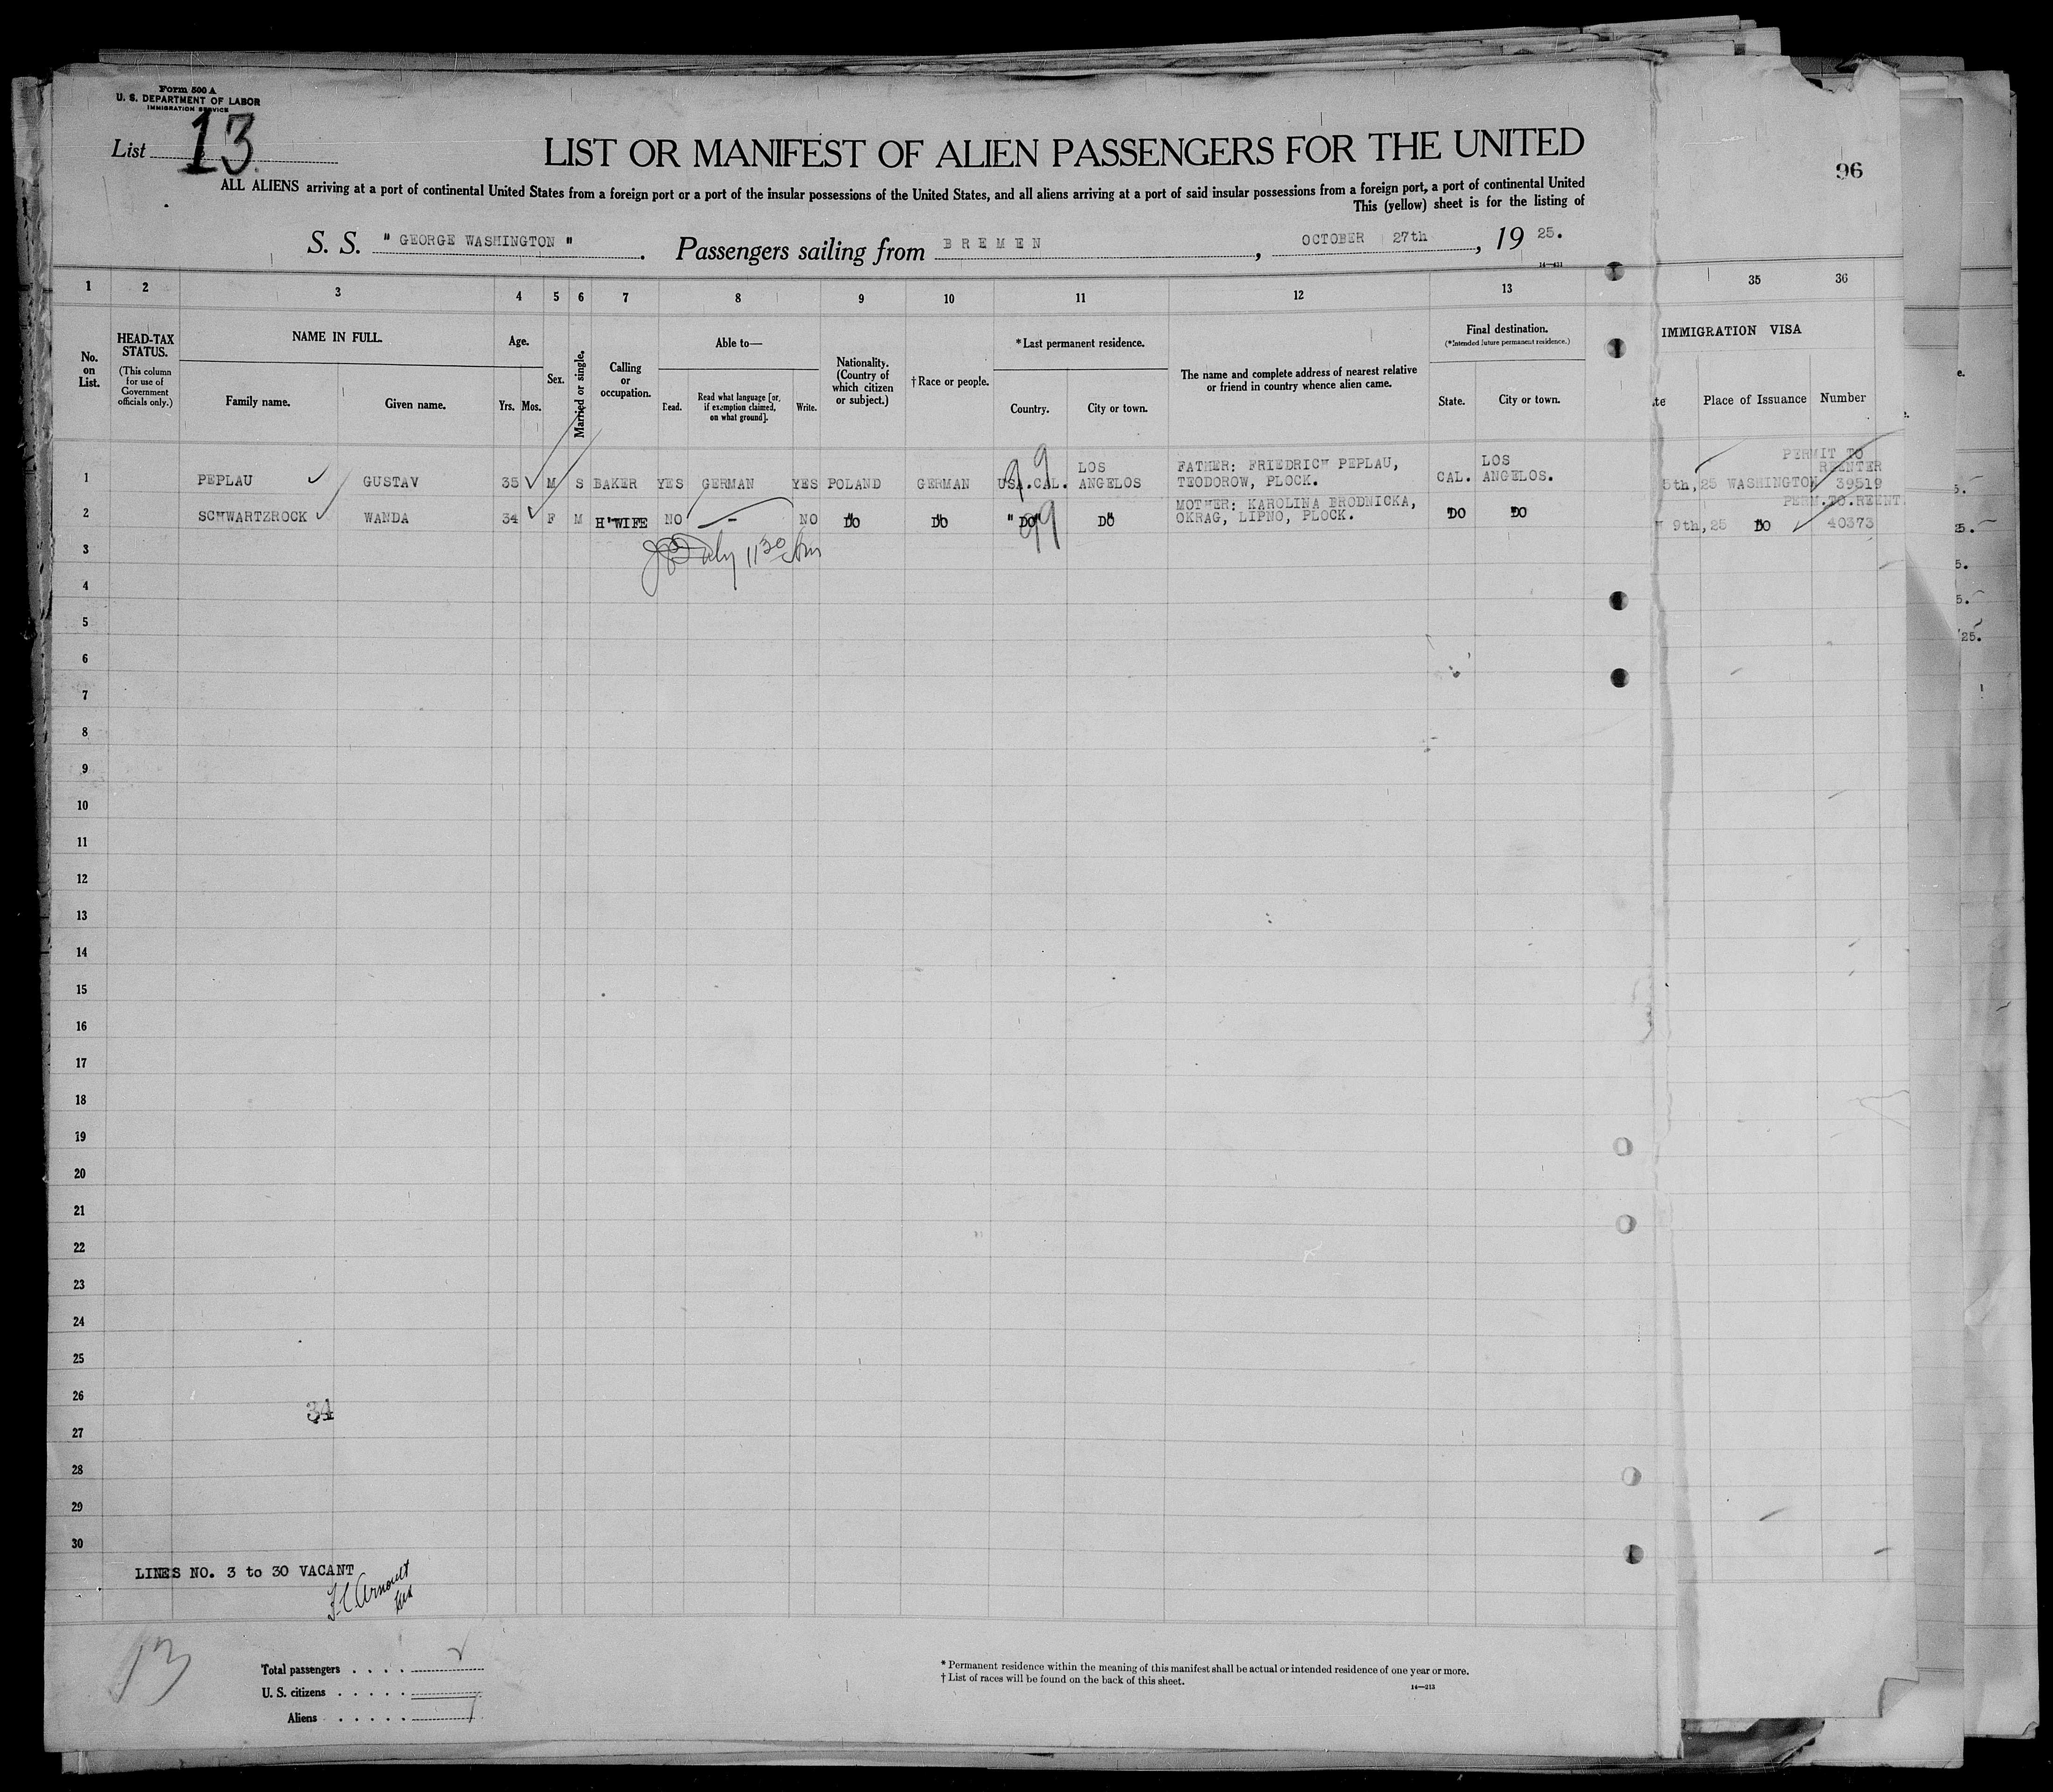 Form 500 A
U. S. DEPARTMENT OF LABOR
IMMIGRATION SERVICE
List 13
LIST OR MANIFEST OF ALIEN PASSENGERS FOR THE UNITED
96
ALL ALIENS arriving at a port of continental United States from a foreign port or a port of the insular possessions of the United States, and all aliens arriving at a port of said insular possessions from a foreign port, a port of continental United
This (yellow) sheet is for the listing of
S. S. " GEORGE WASHINGTON " . Passengers sailing from BREMEN , OCTOBER 27th , 19 25.
14—431
1 2 3 4 5 6 7 8 9 10 11 12 13 35 36
No. on List.
HEAD-TAX STATUS.
(This column for use of Government officials only.)
NAME IN FULL.
Family name. Given name.
Age.
Yrs. Mos.
Sex.
Married or single.
Calling or occupation.
Able to—
Read. Read what language [or, if exemption claimed, on what ground]. Write.
Nationality. (Country of which citizen or subject.)
† Race or people.
* Last permanent residence.
Country. City or town.
The name and complete address of nearest relative or friend in country whence alien came.
Final destination.
(*Intended future permanent residence.)
State. City or town.
IMMIGRATION VISA
Place of Issuance Number
1 PEPLAU GUSTAV 35 M S BAKER YES GERMAN YES POLAND GERMAN USA.CAL. LOS ANGELOS FATHER: FRIEDRICH PEPLAU, TEODOROW, PLOCK. CAL. LOS ANGELOS. 5th,25 WASHINGTON PERMIT TO REENTER 39519
99
2 SCHWARTZROCK WANDA 34 F M H'WIFE NO - NO DO DO " DO" DO MOTHER: KAROLINA BRODNICKA, OKRAG, LIPNO, PLOCK. DO DO 9th,25 DO PERM.TO.REENT 40373
99
3
4
5
6
7
8
9
10
11
12
13
14
15
16
17
18
19
20
21
22
23
24
25
26
34
27
28
29
30
LINES NO. 3 to 30 VACANT
13
Total passengers . . . .
U. S. citizens . . . . .
Aliens . . . . .
* Permanent residence within the meaning of this manifest shall be actual or intended residence of one year or more.
† List of races will be found on the back of this sheet.
14—213